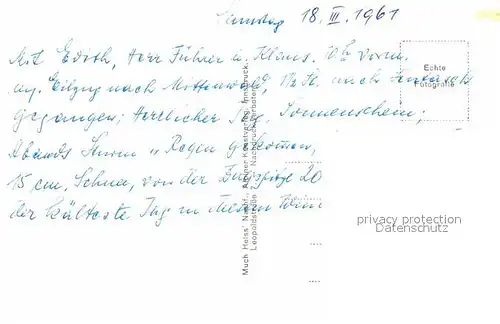 Samstag 18. III. 1961
Mit Edith, Herr Führer u. Klaus. vorm.
Eilzug nach Mittenwald, 1½ St. nach
gegangen; Herrlicher Tag, Sonnenschein;
Abends Sturm u. Regen gekommen,
15 cm. Schnee, von der Zugspitze 20
der kälteste Tag in diesem Winter
Echte
Fotografie
Much Heiss' Nachf., Alpiner Kunstverlag, Innsbruck,
Leopoldstraße Nachdruck verboten
privacy protection
Datenschutz